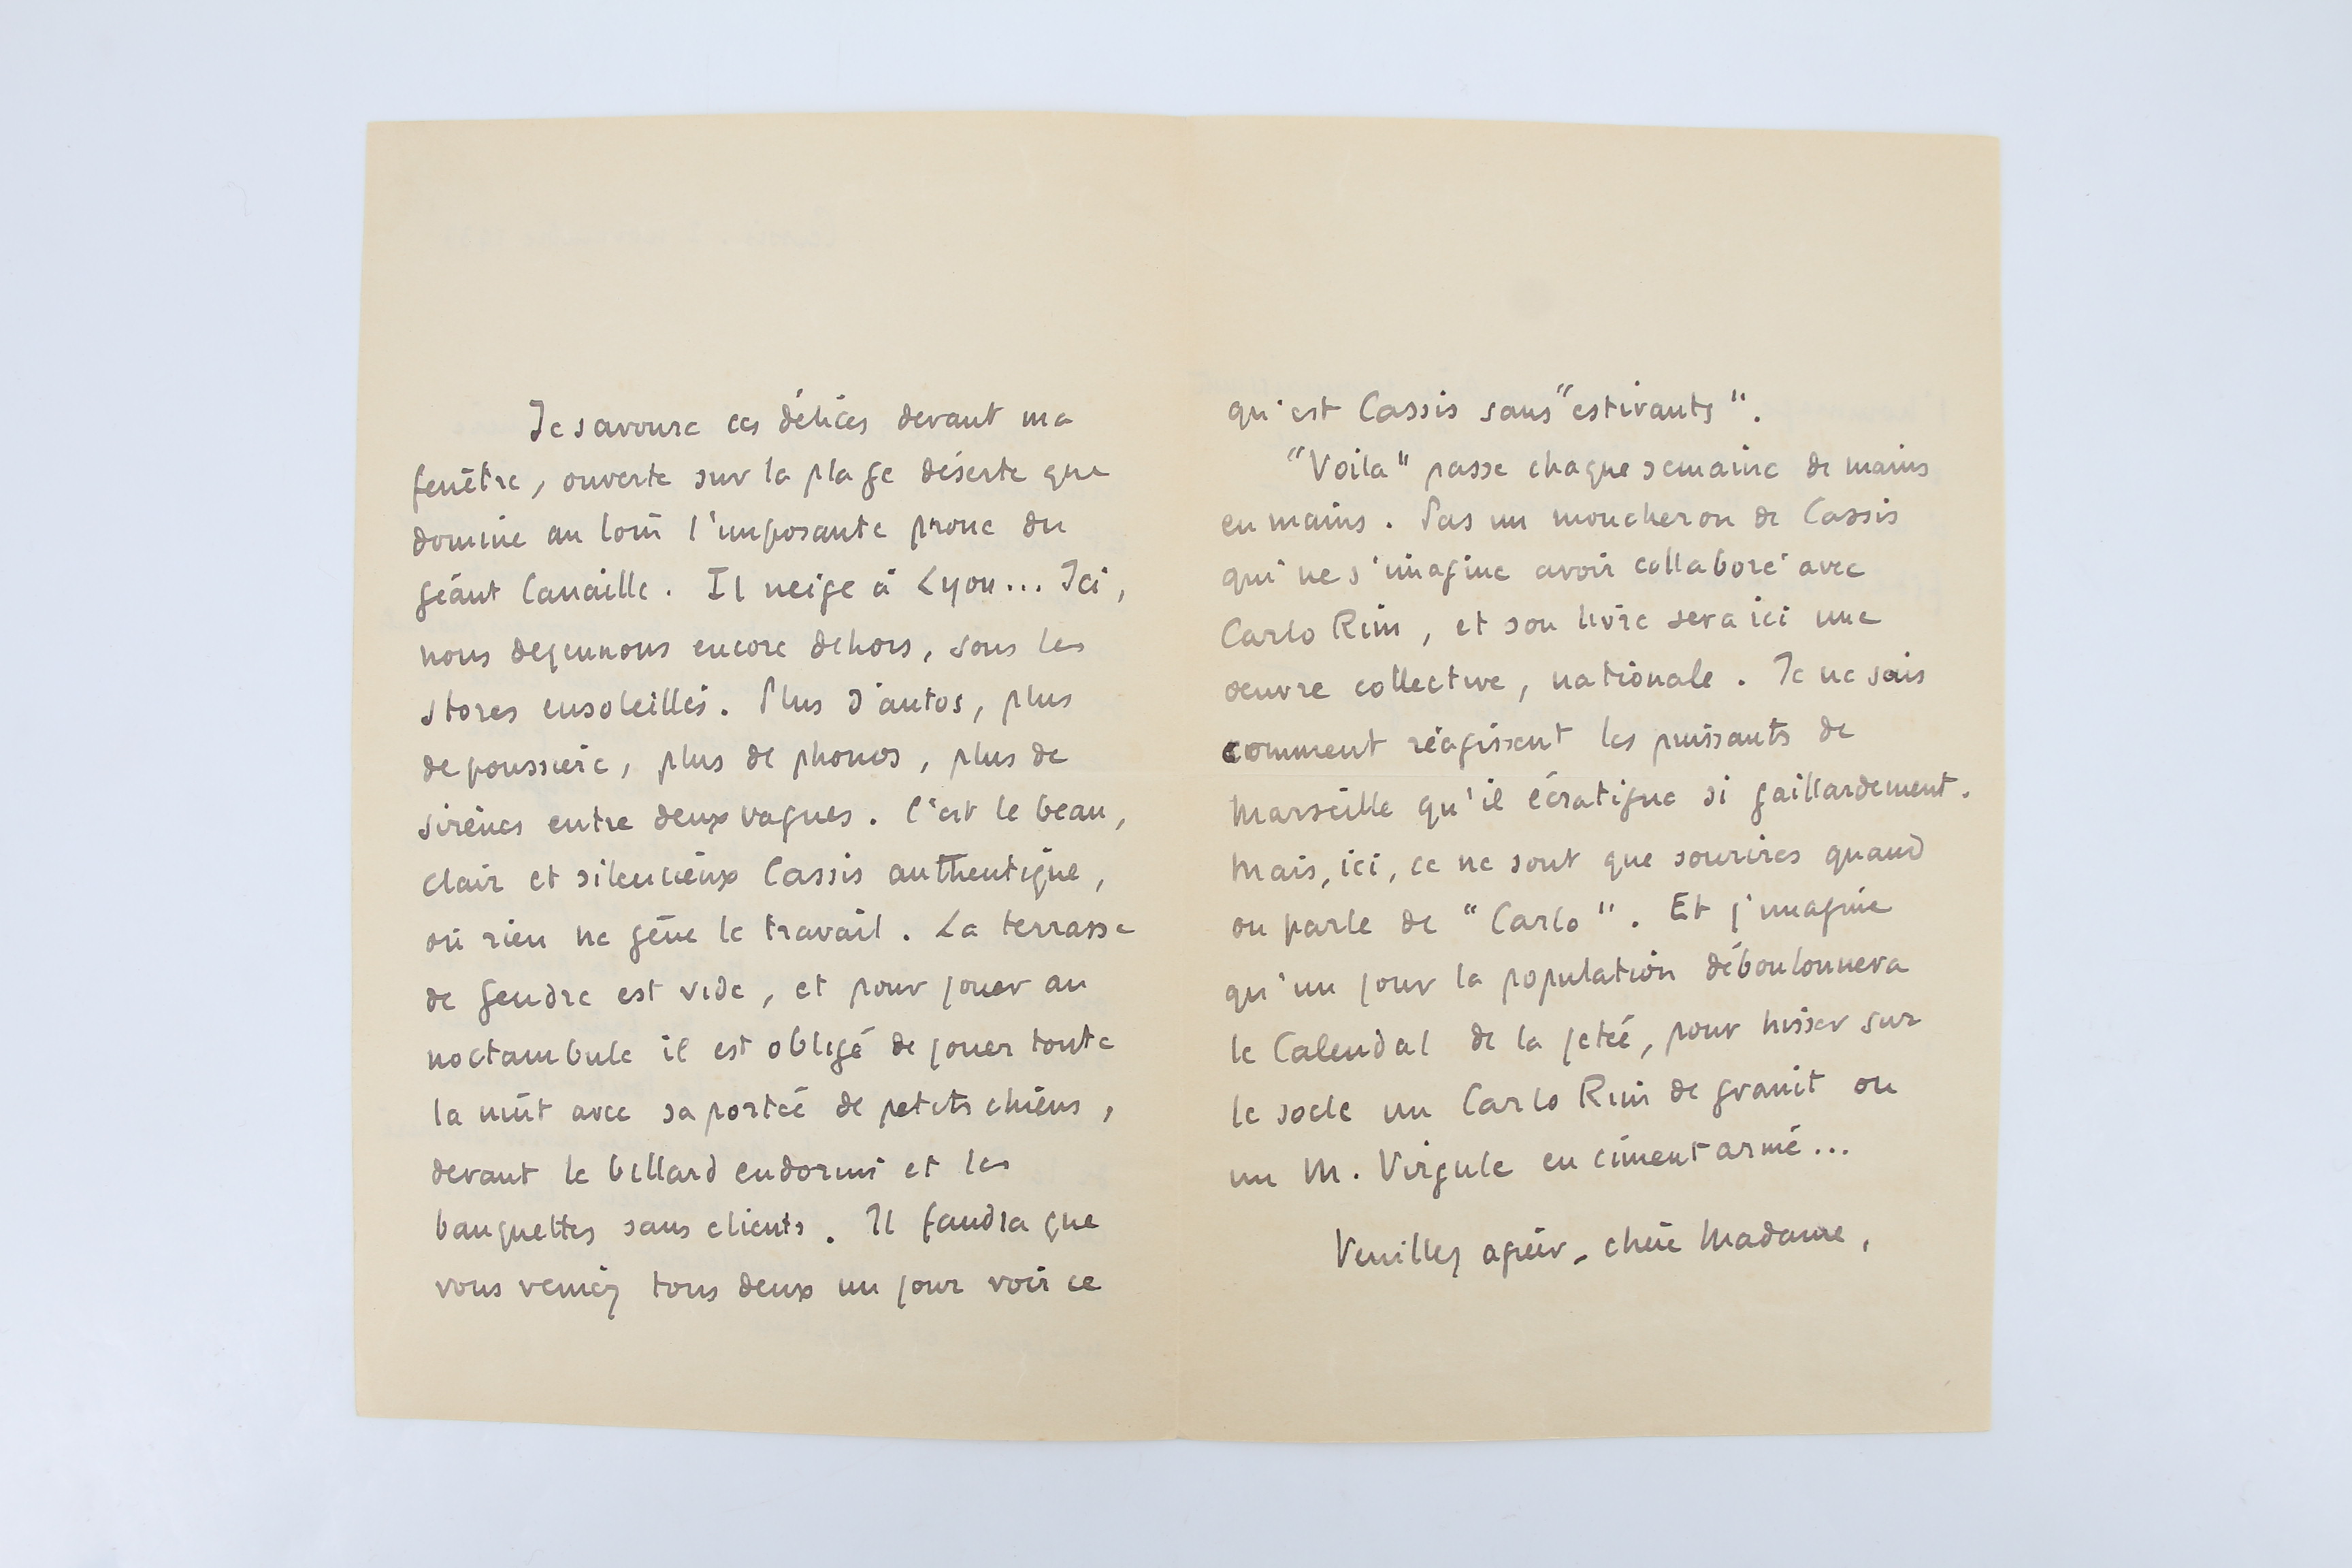 Je savoure ces délices devant ma
fenêtre, ouverte sur la plage déserte que
domine au loin l'imposante proue du
géant Canaille. Il neige à Lyon... Ici,
nous dejeunons encore dehors, sous les
stores ensoleillés. Plus d'autos, plus
de poussière, plus de phonos, plus de
sirènes entre deux vagues. C'est le beau,
clair et silencieux Cassis authentique,
où rien ne gêne le travail. La terrasse
de Gendre est vide, et pour jouer au
noctambule il est obligé de jouer toute
la nuit avec sa portée de petits chiens,
devant le billard endormi et les
banquettes sans clients. Il faudra que
vous veniez tous deux un jour voir ce
qu'est Cassis sans "estivants".
"Voila" passe chaque semaine de mains
en mains. Pas un moucheron de Cassis
qui ne s'imagine avoir collaboré avec
Carlo Rim, et son livre sera ici une
oeuvre collective, nationale. Je ne sais
comment réagissent les puissants de
Marseille qu'il égratigne si gaillardement.
Mais, ici, ce ne sont que sourires quand
on parle de "Carlo". Et j'imagine
qu'un jour la population déboulonnera
le Calendal de la jetée, pour hisser sur
le socle un Carlo Rim de granit ou
un M. Virgule en ciment armé...
Veuillez agréer, chère Madame,